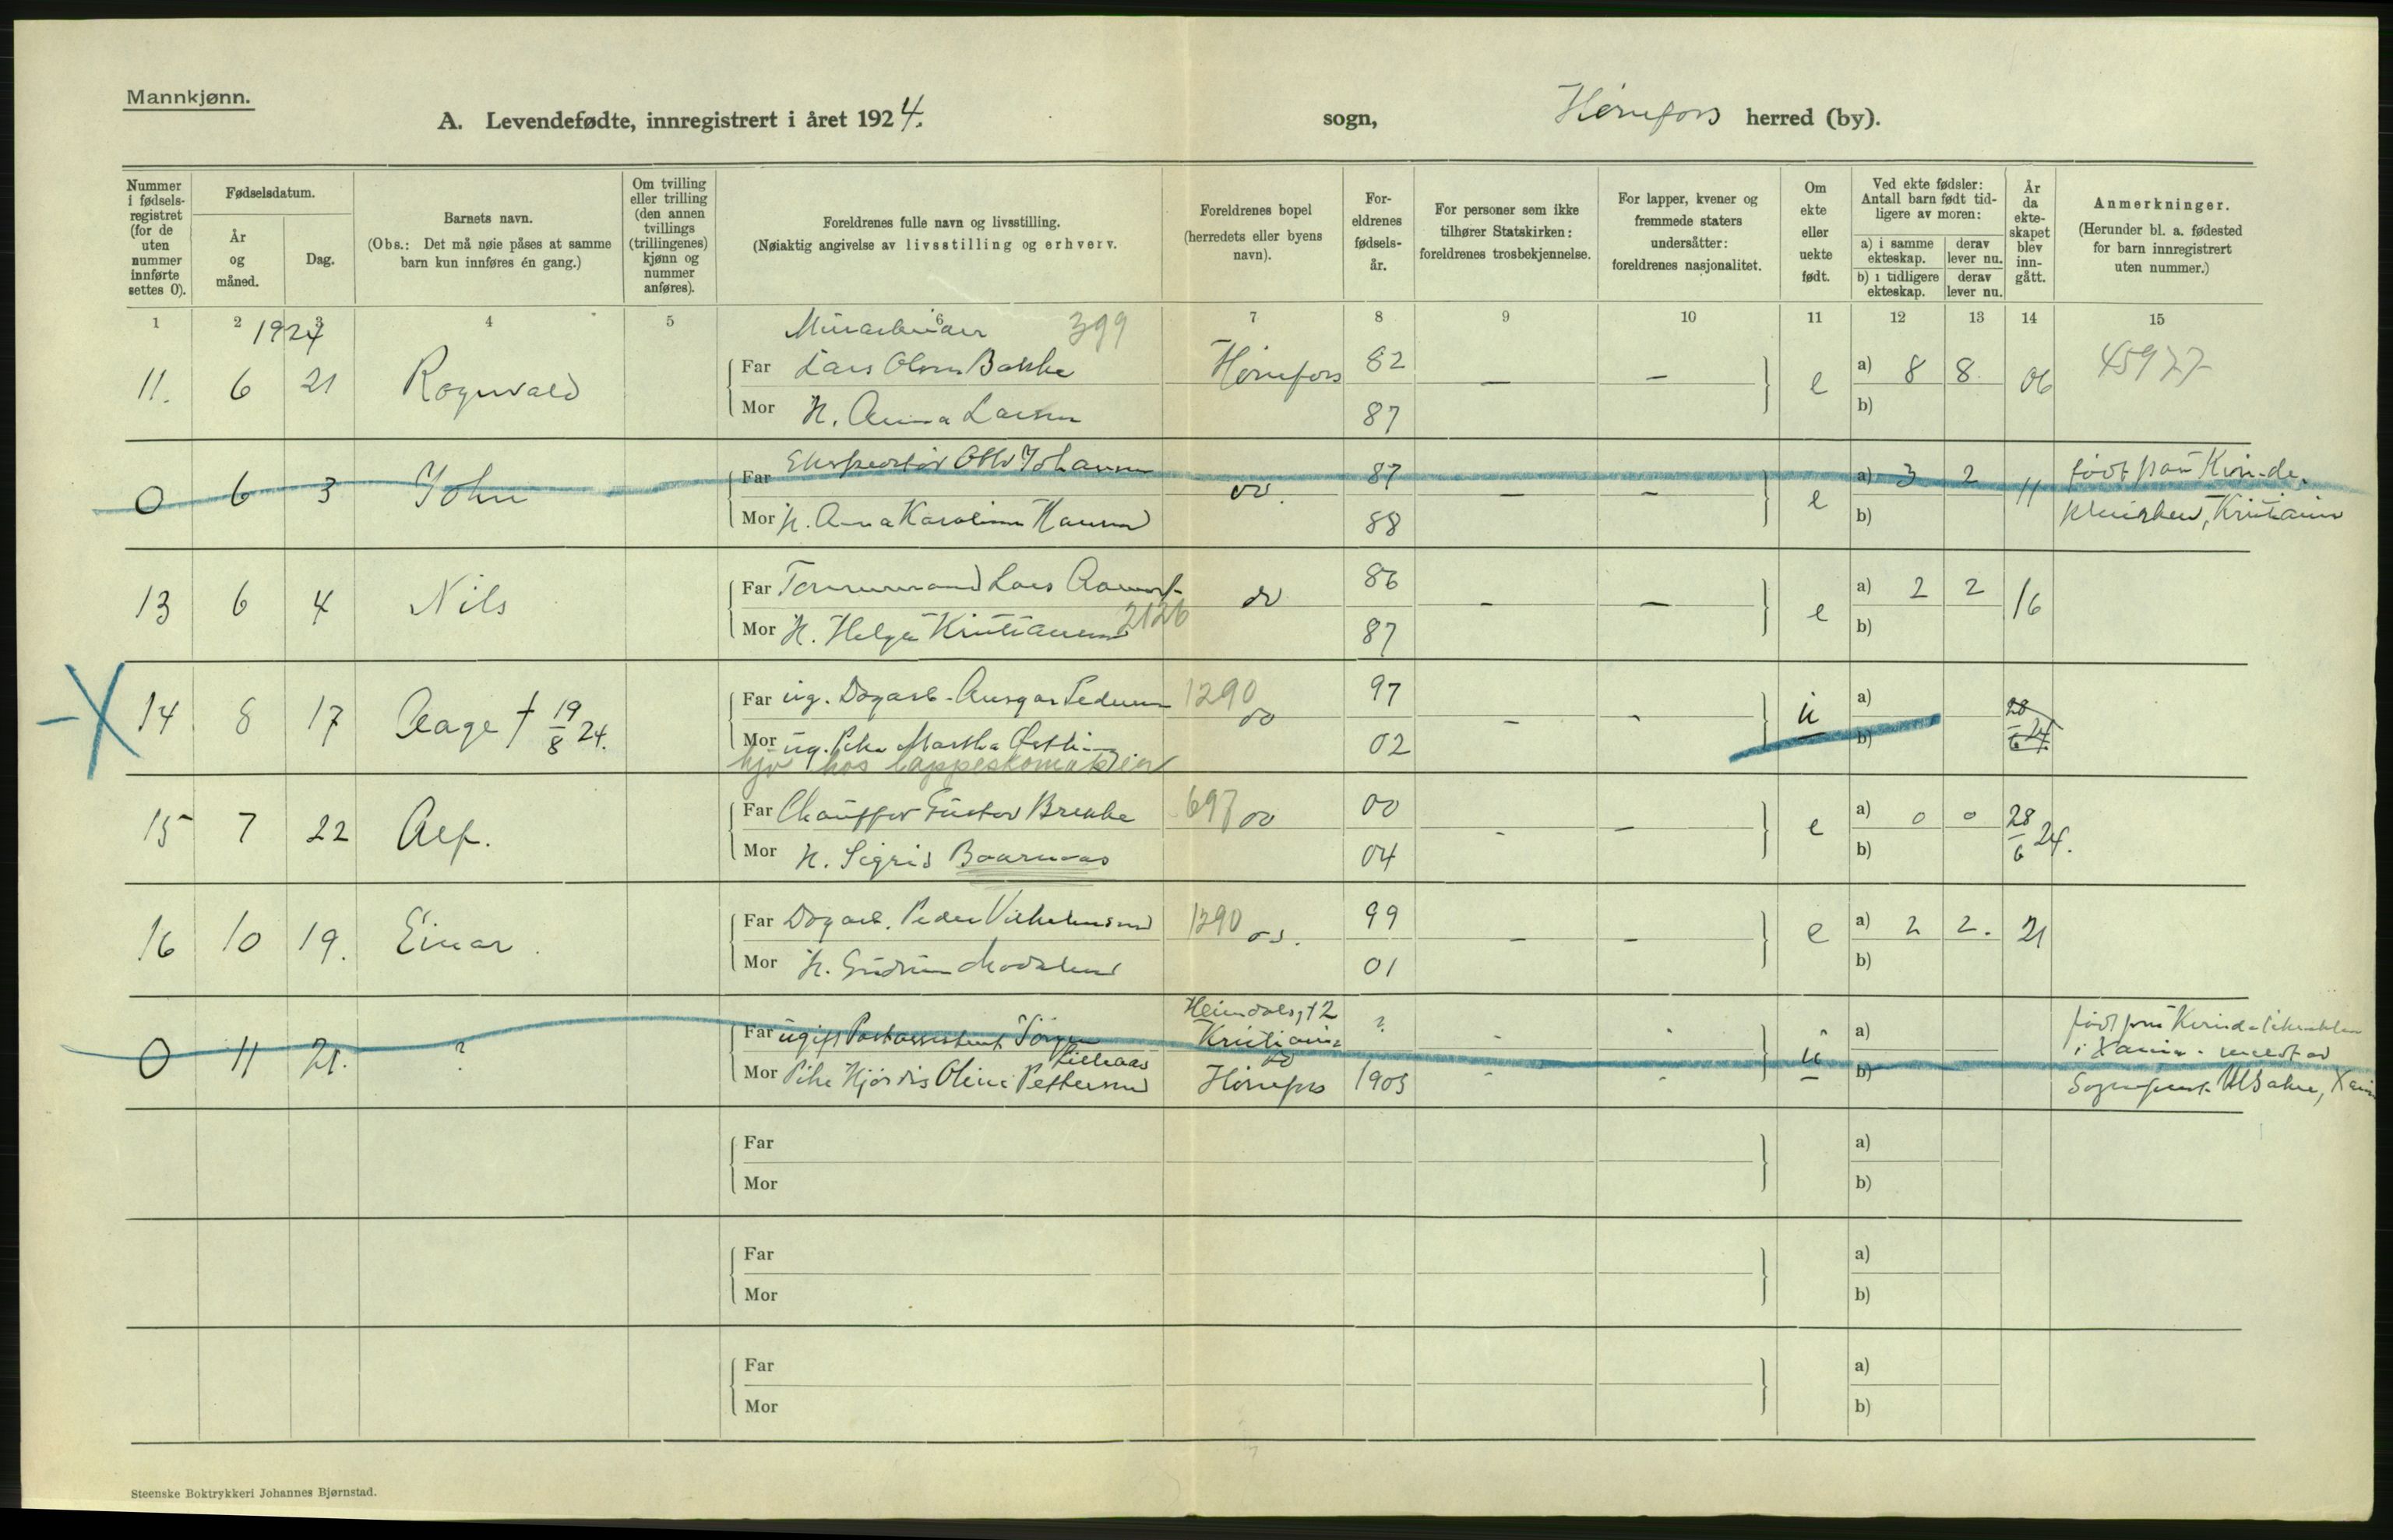 Mannkjønn.
A. Levendefødte, innregistrert i året 1924.
sogn,
Hønefoss herred (by).
Nummer i fødsels-registret (for de uten nummer innførte settes 0).
Fødselsdatum.
År og måned.
Dag.
Barnets navn.
(Obs.: Det må nøie påses at samme barn kun innføres én gang.)
Om tvilling eller trilling (den annen tvillings (trillingenes) kjønn og nummer anføres).
Foreldrenes fulle navn og livsstilling.
(Nøiaktig angivelse av livsstilling og erhverv.
Foreldrenes bopel (herredets eller byens navn).
For-eldrenes fødsels-år.
For personer som ikke tilhører Statskirken: foreldrenes trosbekjennelse.
For lapper, kvener og fremmede staters undersåtter: foreldrenes nasjonalitet.
Om ekte eller uekte født.
Ved ekte fødsler: Antall barn født tid-ligere av moren:
a) i samme ekteskap.
derav lever nu.
b) i tidligere ekteskap.
derav lever nu.
År da ekte-skapet blev inn-gått.
Anmerkninger.
(Herunder bl. a. fødested for barn innregistrert uten nummer.)
1 2 3 4 5 6 7 8 9 10 11 12 13 14 15
1924
Murarbeider 399
11. 6 21 Rognvald
Far Lars Olsen Bakke Hønefoss 82 — — e a) 8 8. 06 45977
Mor H. Anna Larsen 87 b)
0 6 3 John
Far Ekspeditør Otto Johansen do. 87 — — e a) 3 2 11 født paa Kvinde-
Mor H. Anna Karoline Hansen 88 b) klinikken, Kristiania
13 6 4 Nils
Far Tømmermand Lars do 86 — — e a) 2 2 16
Mor H. Helga Kristiansen 2126 87 b)
14 8 17 Aage † 19/8 24.
Far ug. Dagarb. Ansgar Pedersen 1290 do 97 — - u a) 28/6 24.
Mor ug. Pike Martha 02 b)
hjo hos lappeskomaker
15 7 22 Alf.
Far Chauffør Gustav Brekke 697 do 00 - — e a) 0 0 28/6 24.
Mor H. Sigrid 04 b)
16 10 19. Einar.
Far Dagarb. Peder Vilhelmsen 1290 do. 99 — — e a) 2 2. 21
Mor H. Gudrun 01 b)
Heimdalsgt 2
0 11 21. ?
Far ugift Postassistent Jörgen Kristiania ? - - u a) født paa Kvindeklinikken
Lilleaas do i Xania.
Mor Pike Hjördis Oline Pettersen Hønefoss 1903 b) Sogneprest
Far a)
Mor b)
Far a)
Mor b)
Far a)
Mor b)
Steenske Boktrykkeri Johannes Bjørnstad.